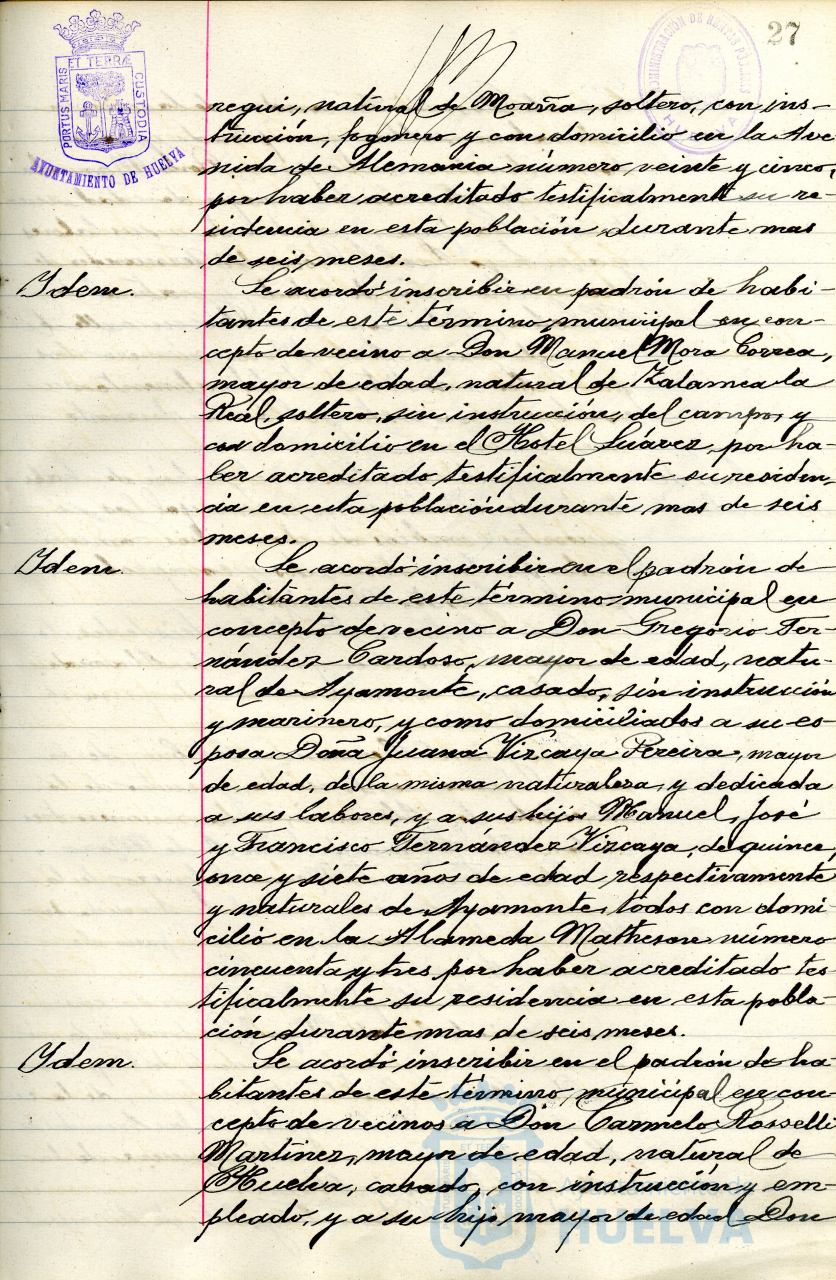 27
PORTUS MARIS
ET TERRÆ
CUSTODIA
AYUNTAMIENTO DE HUELVA
ADMINISTRACIÓN DE RENTAS PÚBLICAS
HUELVA
regui, natural de Moaña, soltero, con ins-
trucción, fogonero y con domicilio en la Ave
nida de Alemania número veinte y cinco,
por haber acreditado testificalmente su re-
sidencia en esta población durante mas
de seis meses.
Idem.
Se acordó inscribir en padrón de habi-
tantes de este término municipal en con-
cepto de vecino a Don Manuel Mora Correa,
mayor de edad, natural de Zalamea la
Real, soltero, sin instrucción, del campo, y
con domicilio en el Hotel Suárez, por ha-
ber acreditado testificalmente su residen-
cia en esta población durante mas de seis
meses.
Idem.
Se acordó inscribir en el padrón de
habitantes de este término municipal en
concepto de vecino a Don Gregorio Fer-
nández Cardoso, mayor de edad, natu-
ral de Ayamonte, casado, sin instrucción
y marinero, y como domiciliados a su es-
posa Doña Juana Vizcaya Pereira, mayor
de edad, de la misma naturaleza, y dedicada
a sus labores, y a sus hijos Manuel, José
y Francisco Fernández Vizcaya, de quince,
once y siete años de edad respectivamente
y naturales de Ayamonte, todos con domi-
cilio en la Alameda Matheson número
cincuenta y tres por haber acreditado tes
tificalmente su residencia en esta pobla-
ción durante mas de seis meses.
Idem.
Se acordó inscribir en el padrón de ha-
bitantes de este término municipal en con-
cepto de vecinos a Don Carmelo Rosselli
Martínez, mayor de edad, natural de
Huelva, casado, con instrucción y em-
pleado, y a su hijo mayor de edad Don
Ayuntamiento de
HUELVA